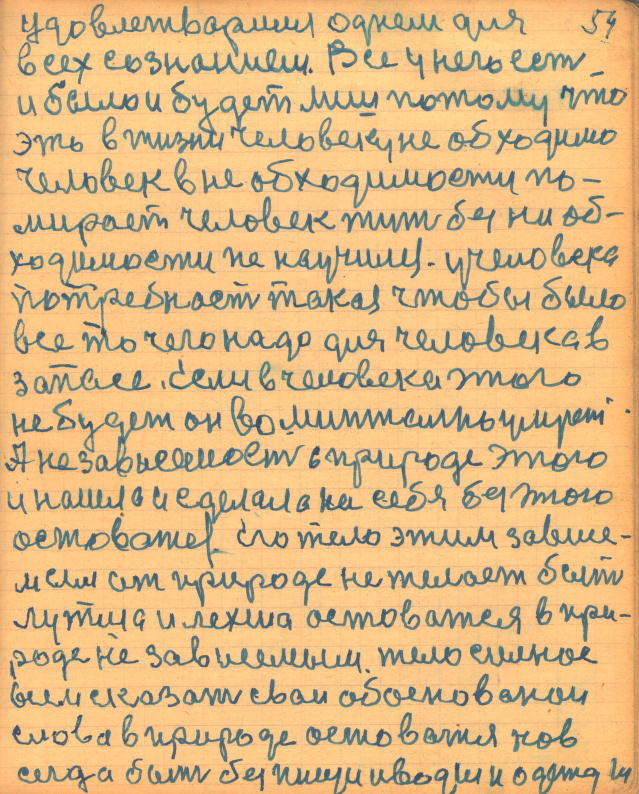 удовлетварился однем для 54
всех сознанием. Все у него ест
и было и будет лиш потому что
эть в жизни человеку не обходимо
Человек в не обходимости по-
мирает человек жит без ни об-
ходимости не научился. у человека
потребност такая чтобы было
все то чего надо для человека в
запасе. если в человека этого
не будет он во
А независемост в природе этого
и нашла и сделала на себя без этого
остоватся. его тело этим завше-
мсем от природе не желает быт
лутша и лехша остоватся в при-
роде не зависемым. тело силное
всем сказат сваи обоснованои
слова в природе остоватя нов
сегда быт без пищи и воды и одежды